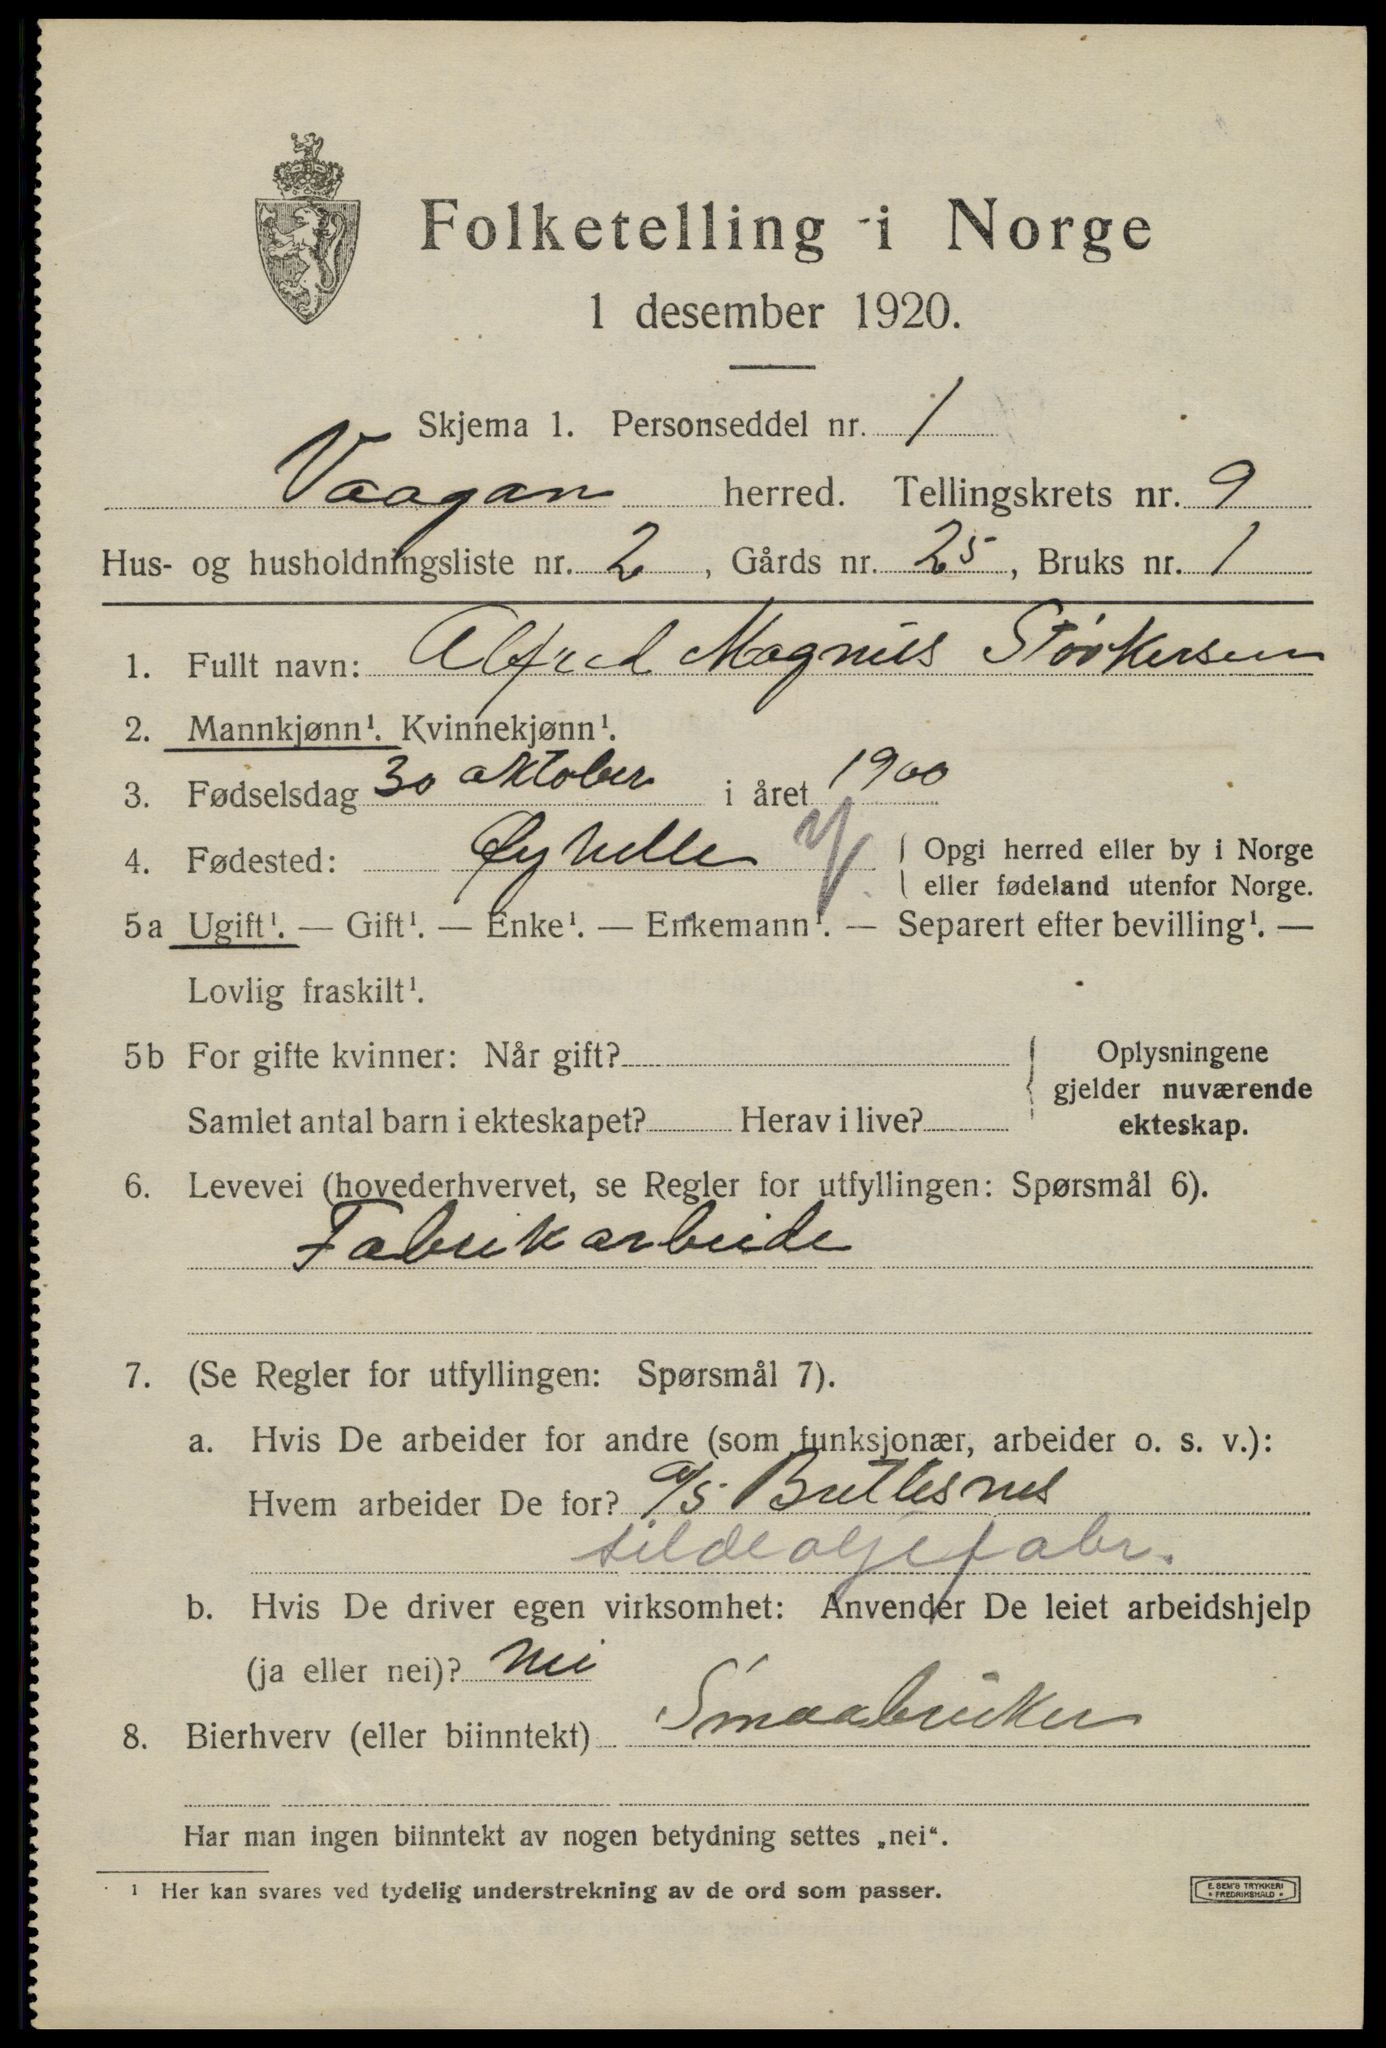 Folketelling i Norge
1 desember 1920.
Skjema 1. Personseddel nr. 1
Vaagan herred. Tellingskrets nr. 9
Hus- og husholdningsliste nr. 2, Gårds nr. 25, Bruks nr. 1
1. Fullt navn: Alfred Magnus Størkersen
2. Mannkjønn¹. Kvinnekjønn¹.
3. Fødselsdag 30 oktober i året 1900
4. Fødested: Øyhelle { Opgi herred eller by i Norge
eller fødeland utenfor Norge.
5a Ugift¹. — Gift¹. — Enke¹. — Enkemann¹. — Separert efter bevilling¹. —
Lovlig fraskilt¹.
5b For gifte kvinner: Når gift?
Samlet antal barn i ekteskapet? Herav i live?
{ Oplysningene
gjelder nuværende
ekteskap.
6. Levevei (hovederhvervet, se Regler for utfyllingen: Spørsmål 6).
Fabrikarbeide
7. (Se Regler for utfyllingen: Spørsmål 7).
a. Hvis De arbeider for andre (som funksjonær, arbeider o. s. v.):
Hvem arbeider De for? a/s Brettesnes
sildeoljefabr.
b. Hvis De driver egen virksomhet: Anvender De leiet arbeidshjelp
(ja eller nei)? nei
8. Bierhverv (eller biinntekt) Smaabruker
Har man ingen biinntekt av nogen betydning settes „nei“.
¹ Her kan svares ved tydelig understrekning av de ord som passer.
E. SEM'S TRYKKERI
• FREDRIKSHALD •